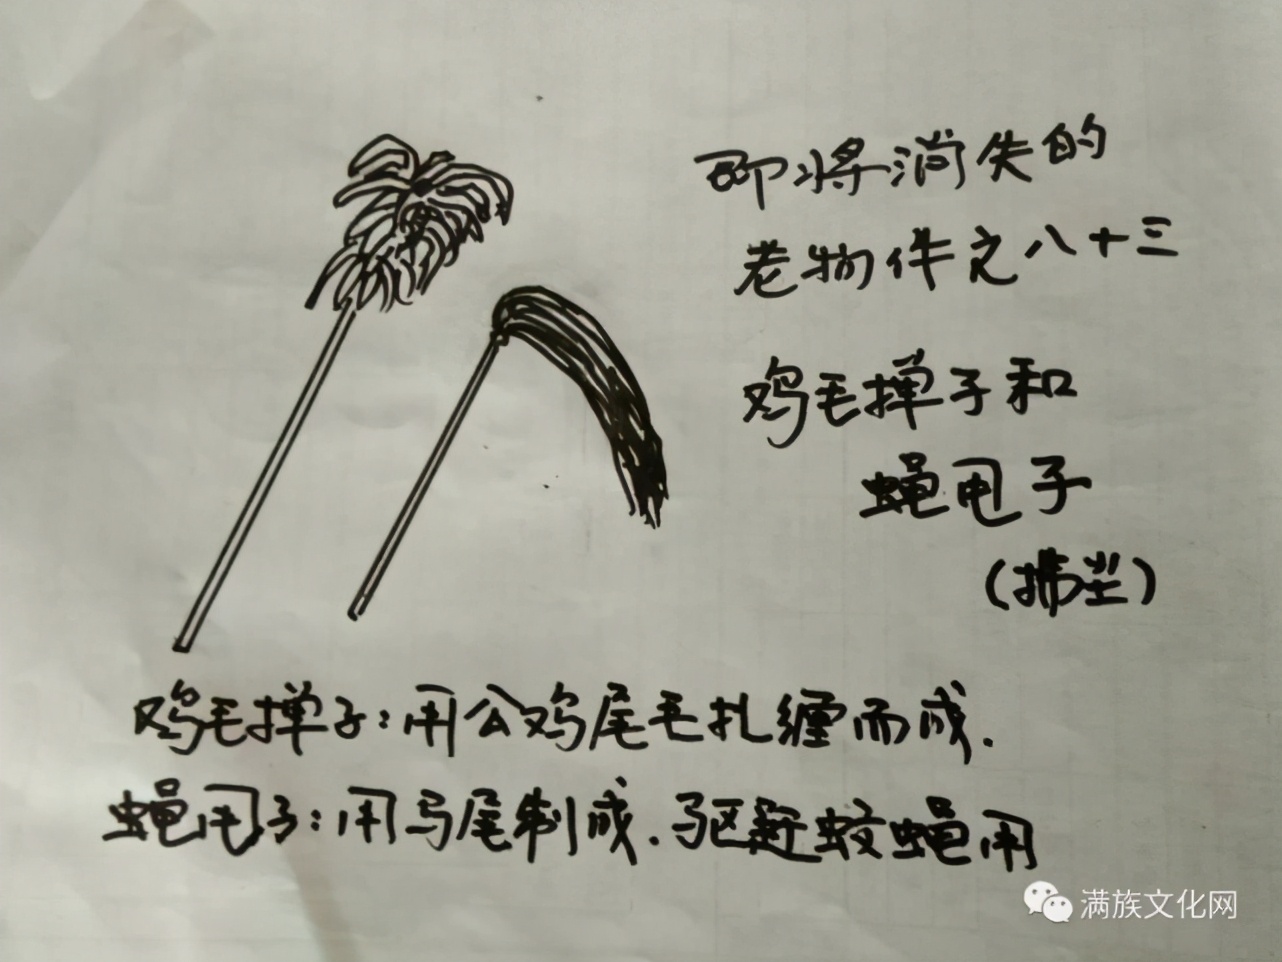 即将消失的
老物件之八十三
鸡毛掸子和
蝇甩子
(拂尘)
鸡毛掸子:用公鸡尾毛扎缠而成.
蝇甩子:用马尾制成.驱赶蚊蝇用
满族文化网